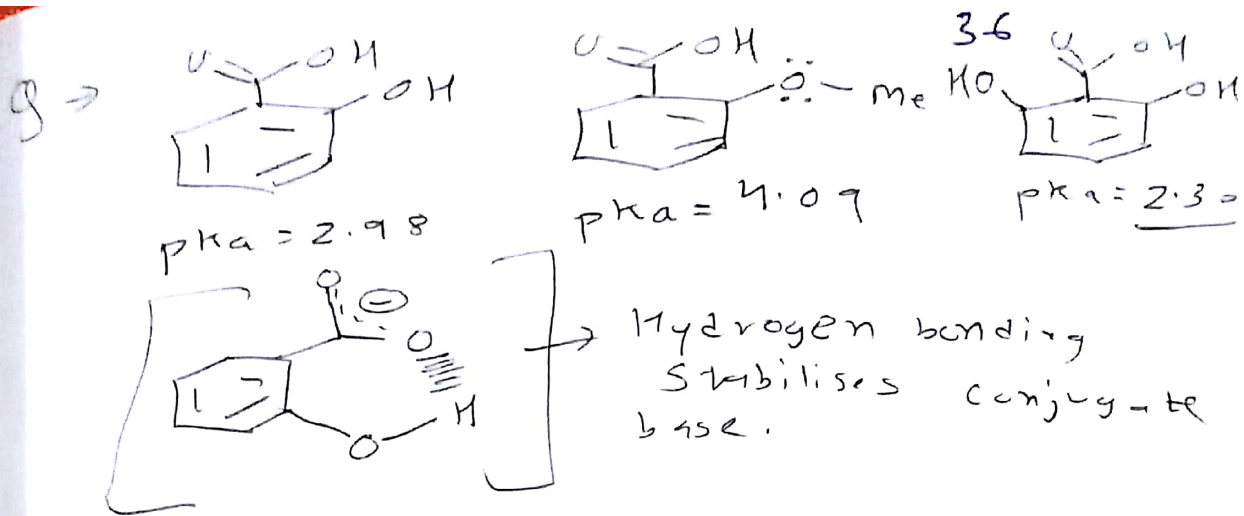 36
g →
O OH OH
O OH O Me
HO O OH OH
pka = 2.98
pka = 4.09
pka = 2.30
O ⊖ O H O
→ Hydrogen bonding
stabilises conjugate
base.